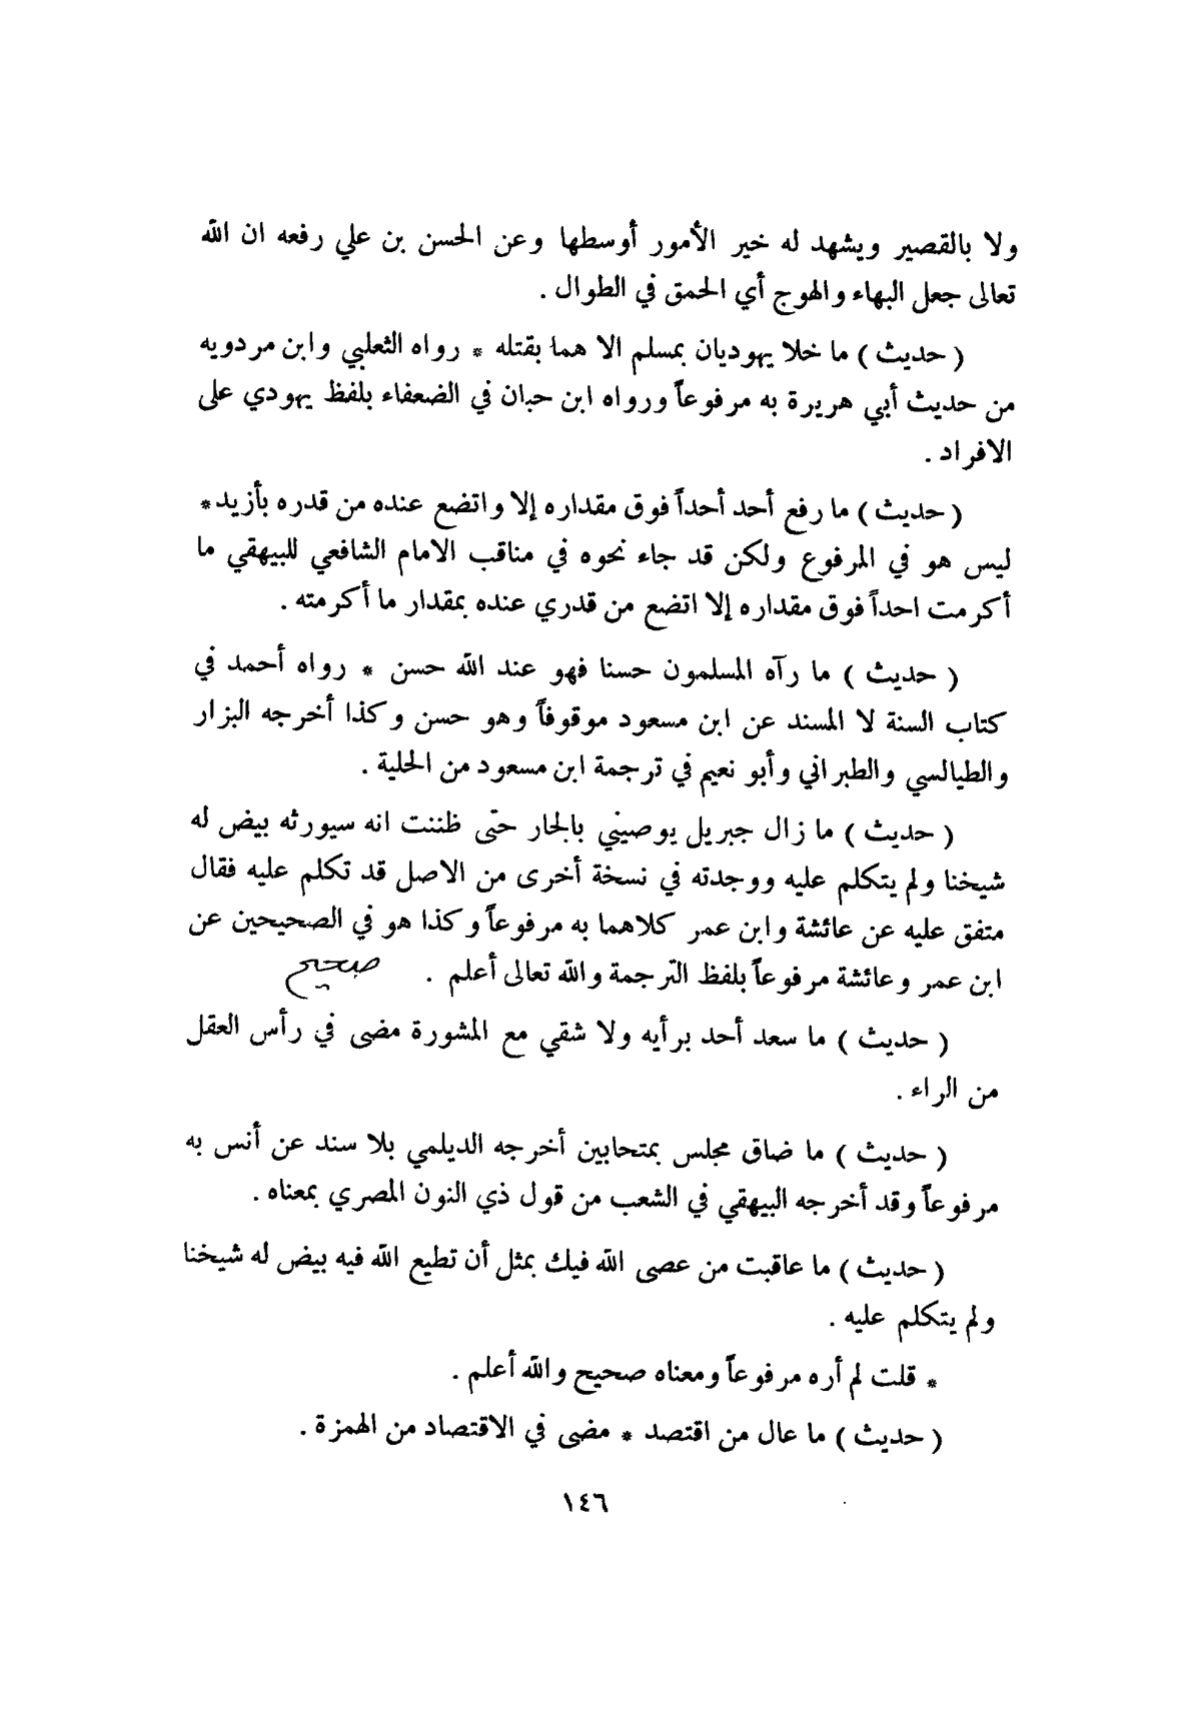 ولا بالقصير ويشهد له خير الأمور أوسطها وعن الحسن بن علي رفعه ان الله
تعالى جعل البهاء والهوج أي الحمق في الطوال .
( حديث ) ما خلا يهوديان بمسلم الا هما بقتله * رواه الثعلبي وابن مردويه
من حديث أبي هريرة به مرفوعاً ورواه ابن حبان في الضعفاء بلفظ يهودي على
الافراد .
( حديث ) ما رفع أحد أحداً فوق مقداره إلا واتضع عنده من قدره بأزيد *
ليس هو في المرفوع ولكن قد جاء نحوه في مناقب الامام الشافعي للبيهقي ما
أكرمت احداً فوق مقداره إلا اتضع من قدري عنده بمقدار ما أكرمته .
( حديث ) ما رآه المسلمون حسنا فهو عند الله حسن * رواه أحمد في
كتاب السنة لا المسند عن ابن مسعود موقوفاً وهو حسن وكذا أخرجه البزار
والطيالسي والطبراني وأبو نعيم في ترجمة ابن مسعود من الحلية .
( حديث ) ما زال جبريل يوصيني بالجار حتى ظننت انه سيورثه بيض له
شيخنا ولم يتكلم عليه ووجدته في نسخة أخرى من الاصل قد تكلم عليه فقال
متفق عليه عن عائشة وابن عمر كلاهما به مرفوعاً وكذا هو في الصحيحين عن
ابن عمر وعائشة مرفوعاً بلفظ الترجمة والله تعالى أعلم . صحيح
( حديث ) ما سعد أحد برأيه ولا شقي مع المشورة مضى في رأس العقل
من الراء .
( حديث ) ما ضاق مجلس بمتحابين أخرجه الديلمي بلا سند عن أنس به
مرفوعاً وقد أخرجه البيهقي في الشعب من قول ذي النون المصري بمعناه .
( حديث ) ما عاقبت من عصى الله فيك بمثل أن تطيع الله فيه بيض له شيخنا
ولم يتكلم عليه .
* قلت لم أره مرفوعاً ومعناه صحيح والله أعلم .
( حديث ) ما عال من اقتصد * مضى في الاقتصاد من الهمزة .
١٤٦